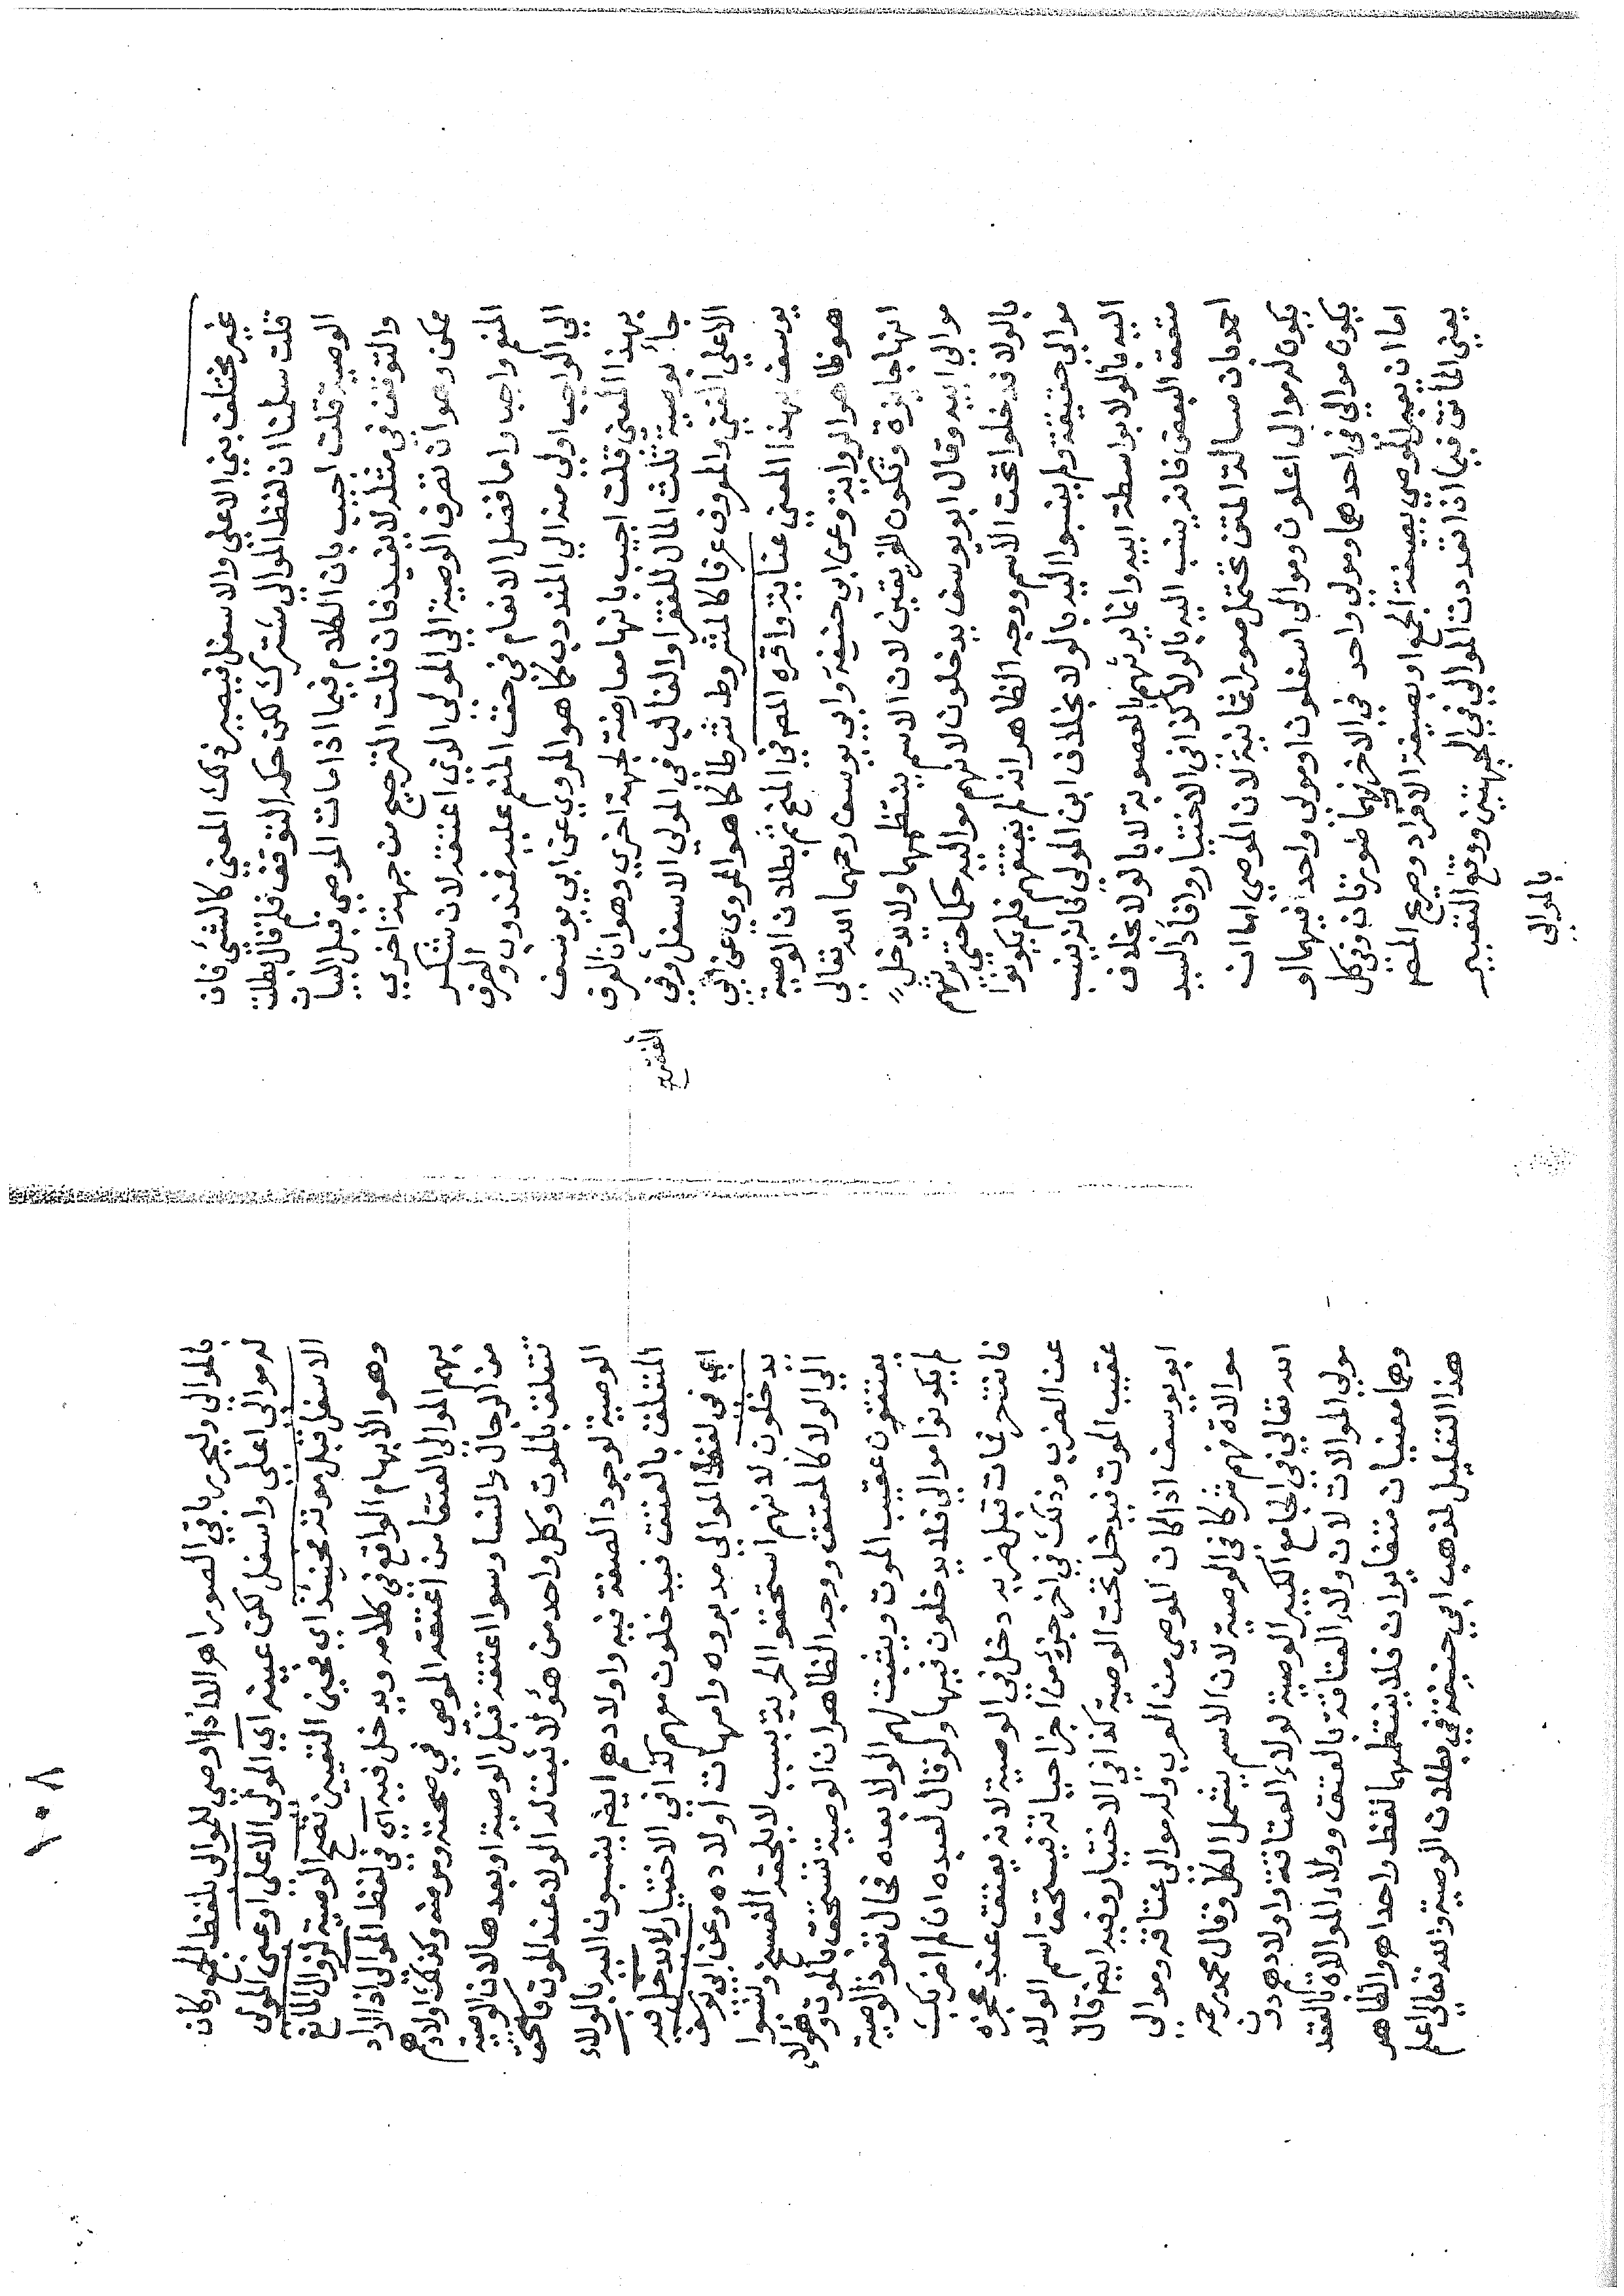 غير مختلف بني الاعلي والاسفل فيصير في ذلك المعني كالشئ فان
قلت سلمنا ان لفظ الموالي مشترك لكن حكمه التوقف فلم قال بطلت
الوصية قلت اجيب بان الكلام فيما اذا مات الموصي قبل البيان
والتوقف في مثله لا يفيد فان قلت الترجيح من جهة اخري
ممكن وهو ان تصرف الوصية الي المولي الذي اعتقه لان شكر
المنعم واجب واما فضل الانعام في حق المنعم عليه فمندوب والصرف
الي الواجب اولي منه الي المندوب كما هو المروي عن ابي يوسف
بهذا المعني قلت اجيب بانها معارضة لجهة اخري وهو ان العرف
جاء بوصية ثلث المال للفقراء والغالب في المولي الاسفل الفقر وفي
الاعلي الغني والمعروف عرفا كالمشروط شرطا كما هو المروي عن ابي
يوسف بهذا المعني عناية واقره المص في المنح ثم بطلان الوصية
هو ظاهر الرواية وعن ابي حنيفة وابي يوسف رحمهما الله تعالي
انها جايزة وتكون للفريقين لان الاسم ينتظمهما ولا يدخل
موالي ابيه وقال ابو يوسف يدخلون لانهم مواليه حكما حتي يرثهم
بالولا فدخلوا تحت الاسم ووجه الظاهر انه لم يعتقهم فلم يكونوا
موالي حقيقة ولم ينسبوا اليه بالولا بخلاف ابن المولي فانه ينسب
اليه بالولا بواسطة ابيه وانما يرثهم بالعصوبة لا بالولا بخلاف
معتقه البعض فانه ينسب اليه بالولا كذا في الاختيار وافاد السيد
احمد بان مسالة المتن تحتمل صورا ثمانية لان الموصي اما ان
يكون له موالي اعلون وموالي اسفلون او مولي واحد فيهما او
يكون موالي في احدهما ومولي واحد في الاخر فهما صورتان وفي كل
اما ان يعبر الموصي بصيغة الجمع او بصيغة الافراد وصريح المص
يعني الماتن فيما اذا تعددت الموالي في الجهتين ووقع التعبير
بالموالي
١٠٨
بالموالي وليحرر باقي الصور اهـ الا اذا اوصي للموالي بلفظ الجمع وكان
له موالي اعلي واسفل لكن عينه اي المولي الاعلي او عني المولي
الاسفل قبل موته فحينئذ اي فحين التعيين تصح الوصية لزوال المانع
وهو الابهام الواقع في كلامه ويدخل فيه اي في لفظ الموالي اذا اراد
بهم الموالي العتقا من اعتقه الموصي في صحته ومرضه وكذلك اولادهم
من الرجال والنسا وسوا اعتقه قبل الوصية او بعدها لان الوصية
تتعلق بالموت وكل واحد من هؤلا ثبت له الولا عند الموت فاستحق
الوصية لوجود الصفة فيه واولادهم ايض ينسبون اليه بالولاء
المتعلق بالعتق فيدخلون معهم كذا في الاختيار لا يدخل فيه
اي في لفظ الموالي مدبروه وامهات اولاده وعن ابي يوسف
يدخلون لانهم استحقوا الحرية بسبب لا يلحقه الفسخ ونسبوا
الي الولا كالمعتق ووجه الظاهر ان الوصية تستحق بالموت وهؤلاء
يعتقون عقيب الموت ويثبت لهم الولا بعده فحال نفوذ الوصية
لم يكونوا موالي فلا يدخلون فيها ولو قال لعبده ان لم اضربك
فانت حر فمات قبل ضربه دخل في الوصية لانه يعتق عند عجزه
عن الضرب وذلك في اخر جزء من اجزا حياته فيستحق اسم الولاء
عقيب الموت فيدخل تحت الوصية كذا في الاختيار وفيه ايض قال
ابو يوسف اذا كان الموصي من العرب وله موالي عتاقة وموالي
موالاة فهم شركا في الوصية لان الاسم يشمل الكل وقال محمد رحمه
الله تعالي في الجامع الكبير الوصية لولاء العتاقة واولادهم دون
مولي الموالات لان ولاء العتاقة بالعتق وولاء الموالاة بالعقد
وهما معنيان متغايران فلا ينتظمهما لفظ واحد وهو الظاهر
هذا التعليل لمذهب ابي حنيفة في بطلان الوصية والله تعالي اعلم